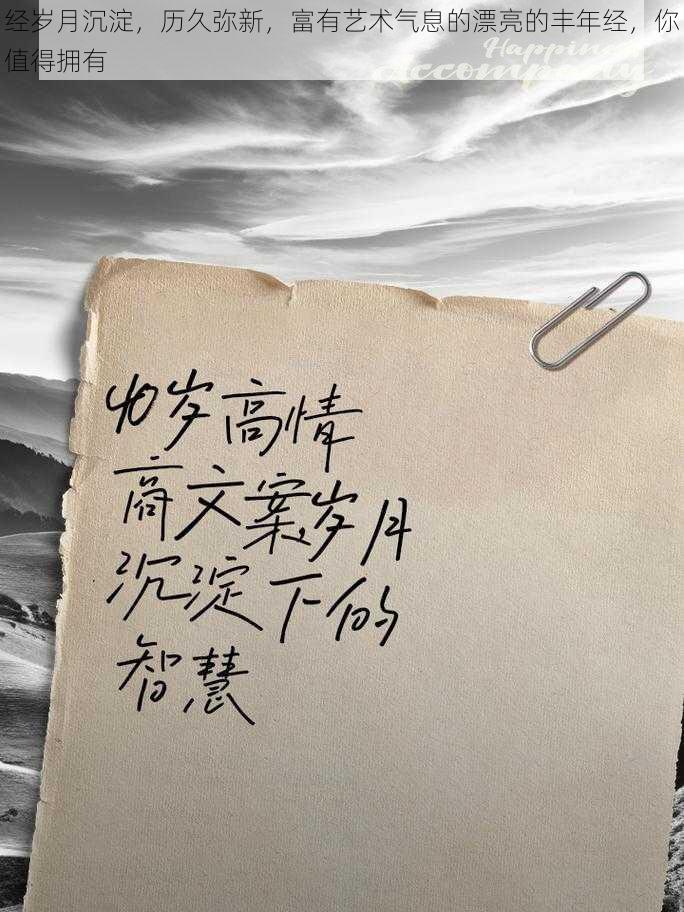 经岁月沉淀，历久弥新，富有艺术气息的漂亮的丰年经，你
值得拥有
Happiness
Accompany
40岁高情
商文案岁月
沉淀下的
智慧